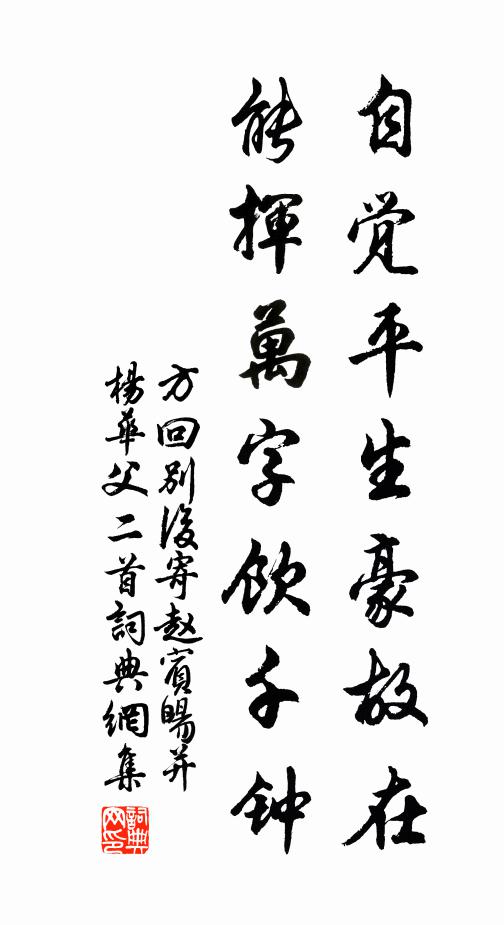 自觉平生豪故在
能揮萬字飲千钟
方回别後寄赵賓暘并
楊華父二首詞典網集
詞典
网印